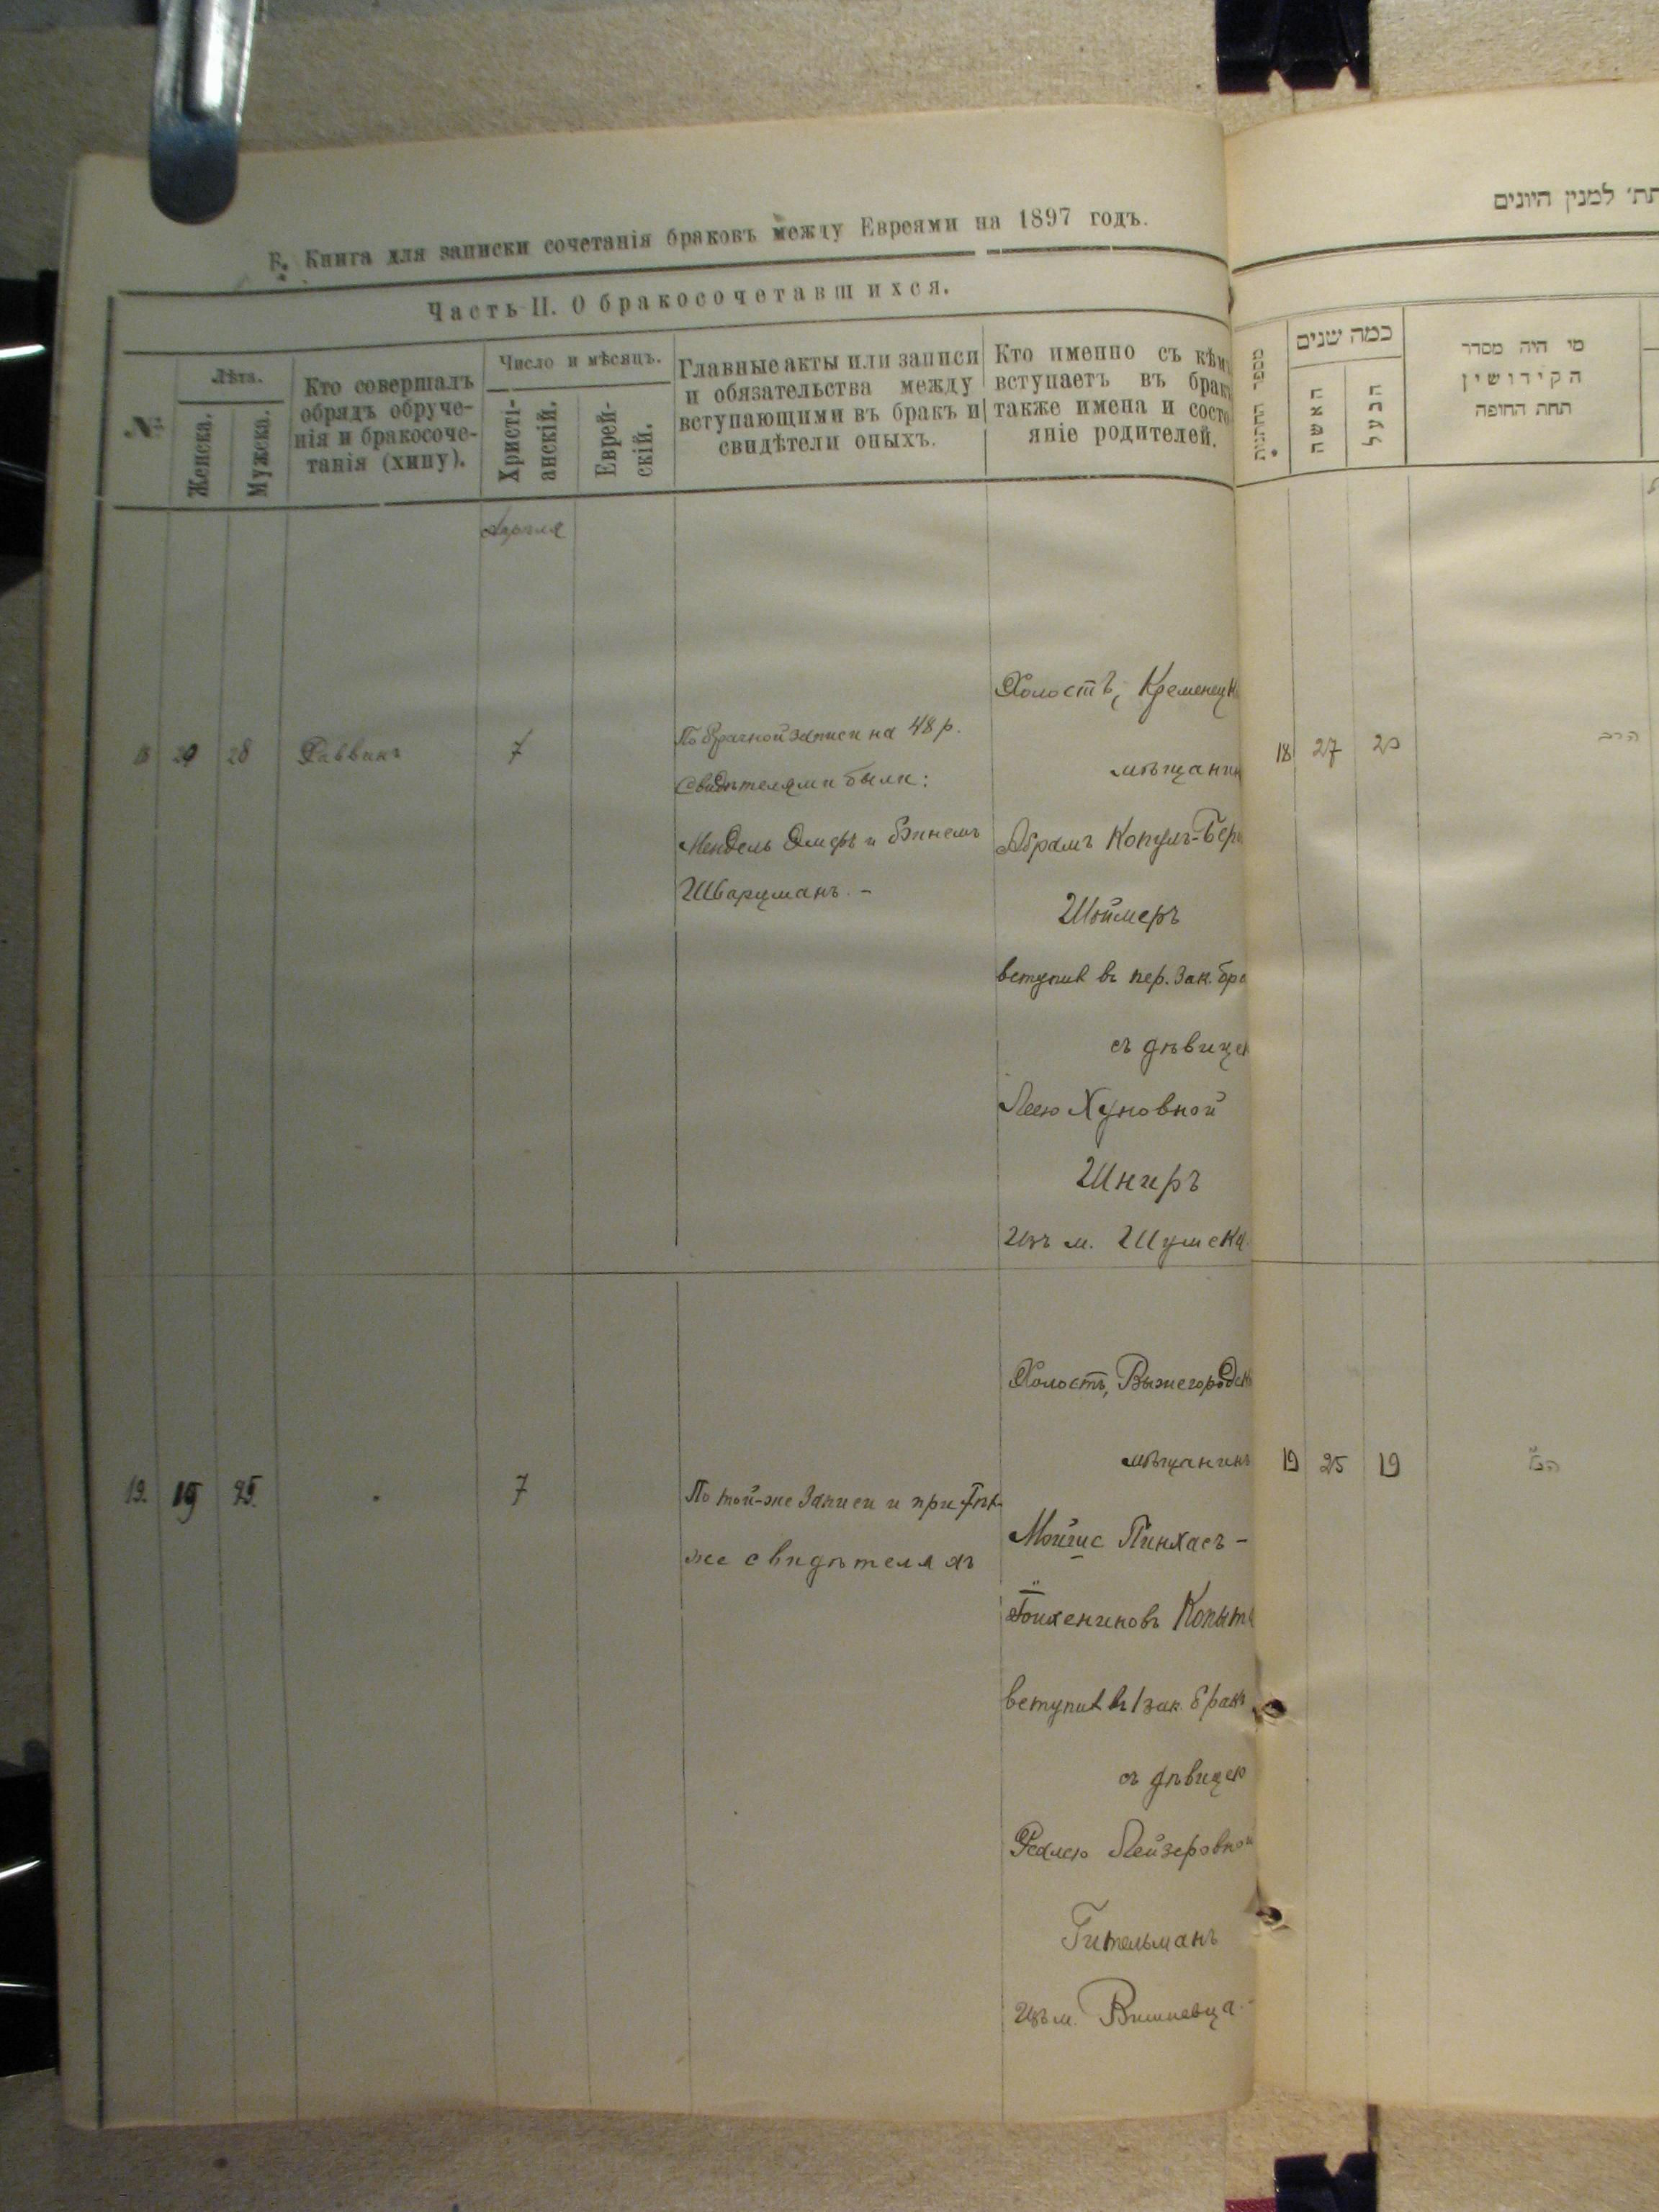 В. Книга для записки сочетанія браковъ между Евреями на 1897 годъ.
Часть II. О бракосочетавшихся.
№
Лѣта.
Женска.
Мужска.
Кто совершалъ
обрядъ обруче-
нія и бракосоче-
танія (хипу).
Число и мѣсяцъ.
Христі-
анскій.
Еврей-
скій.
Главные акты или записи
и обязательства между
вступающими въ бракъ и
свидѣтели оныхъ.
Кто именно съ кѣмъ
вступаетъ въ бракъ
также имена и состо-
яніе родителей.
Апрѣля
18 20 28 Раввинъ 7
По брачной записи на 48 р.
Свидѣтелями были:
Мендель и
Шварцманъ. -
Холостъ, Кременецк
мѣщанин
Абрамъ Копулъ-Бер
Шоймеръ
вступил въ пер. зак. бра
съ дѣвицею
Леею Хуновной
Шниръ
Изъ м. Шумска
19. 19 25. 7
По той-же записи и при тѣхъ
же свидѣтеляхъ
Холостъ, Выжегородск
мѣщанинъ
Пинхасъ -
вступил въ 1 зак. бракъ
съ дѣвицею
Лейзеровной
Гительманъ
Изъ м. Вишневца. -
תת׳ למנין היונים
מספר החתונות
כמה שנים
האשה
הבעל
מי היה מסדר
הקידושין
תחת החופה
18 27 20 הרב
19 25 19 הנ״ל